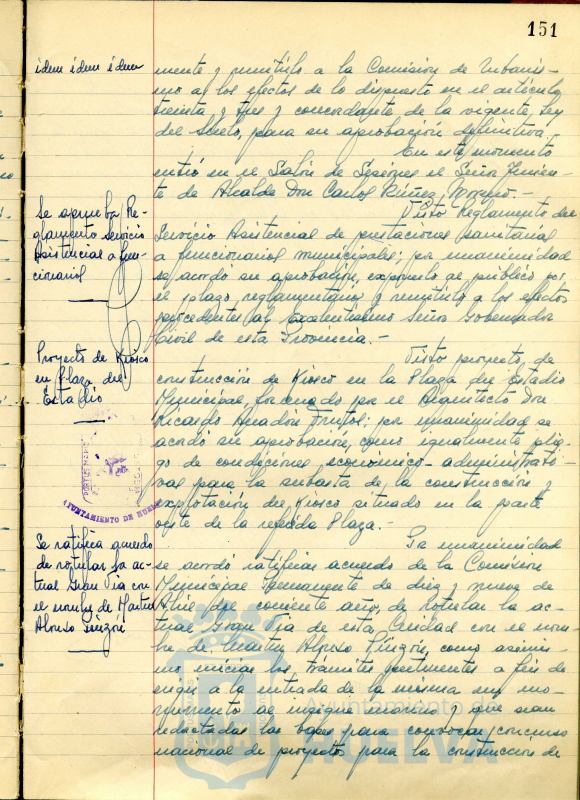 151
idem idem idem
mente y remitirlo a la Comisión de Urbanis-
mo a los efectos de lo dispuesto en el artículo
treinta y tres y concordante de la vigente Ley
del Suelo, para su aprobación definitiva.
En este momento
entró en el Salón de Sesiones el Señor Tenien-
te de Alcalde Don Carlos Núñez Moreno.-
Se aprueba Re-
glamento Servicio
Asistencial a fun-
cionarios
Visto Reglamento del
Servicio Asistencial de prestaciones sanitarias
a funcionarios municipales; por unanimidad
se acordó su aprobación, exponerlo al público por
el plazo reglamentario y remitirlo a los efectos
procedentes al Excelentísimo Señor Gobernador
Civil de esta Provincia.-
Proyecto de Kiosco
en Plaza del
Estadio
Visto proyecto de
construcción de Kiosco en la Plaza del Estadio
Municipal, formado por el Arquitecto Don
Ricardo Anadón Frutos: por unanimidad se
acordó su aprobación, como igualmente plie-
go de condiciones económico-administrati-
vas para la subasta de la construcción y
explotación del Kiosco situado en la parte
oeste de la referida Plaza.-
AYUNTAMIENTO DE HUELVA
Se ratifica acuerdo
de rotular la ac-
tual Gran Vía con
el nombre de Martín
Alonso Pinzón
Por unanimidad
se acordó ratificar acuerdo de la Comisión
Municipal Permanente de diez y nueve de
Abril del corriente año, de rotular la ac-
tual Gran Vía de esta Ciudad con el nom-
bre de Martín Alonso Pinzón, como asimis-
mo iniciar los trámites pertinentes a fin de
erigir a la entrada de la misma un mo-
numento al insigne marino y que sean
redactadas las bases para convocar concurso
nacional de proyectos para la construcción de
Ayuntamiento de
HUELVA